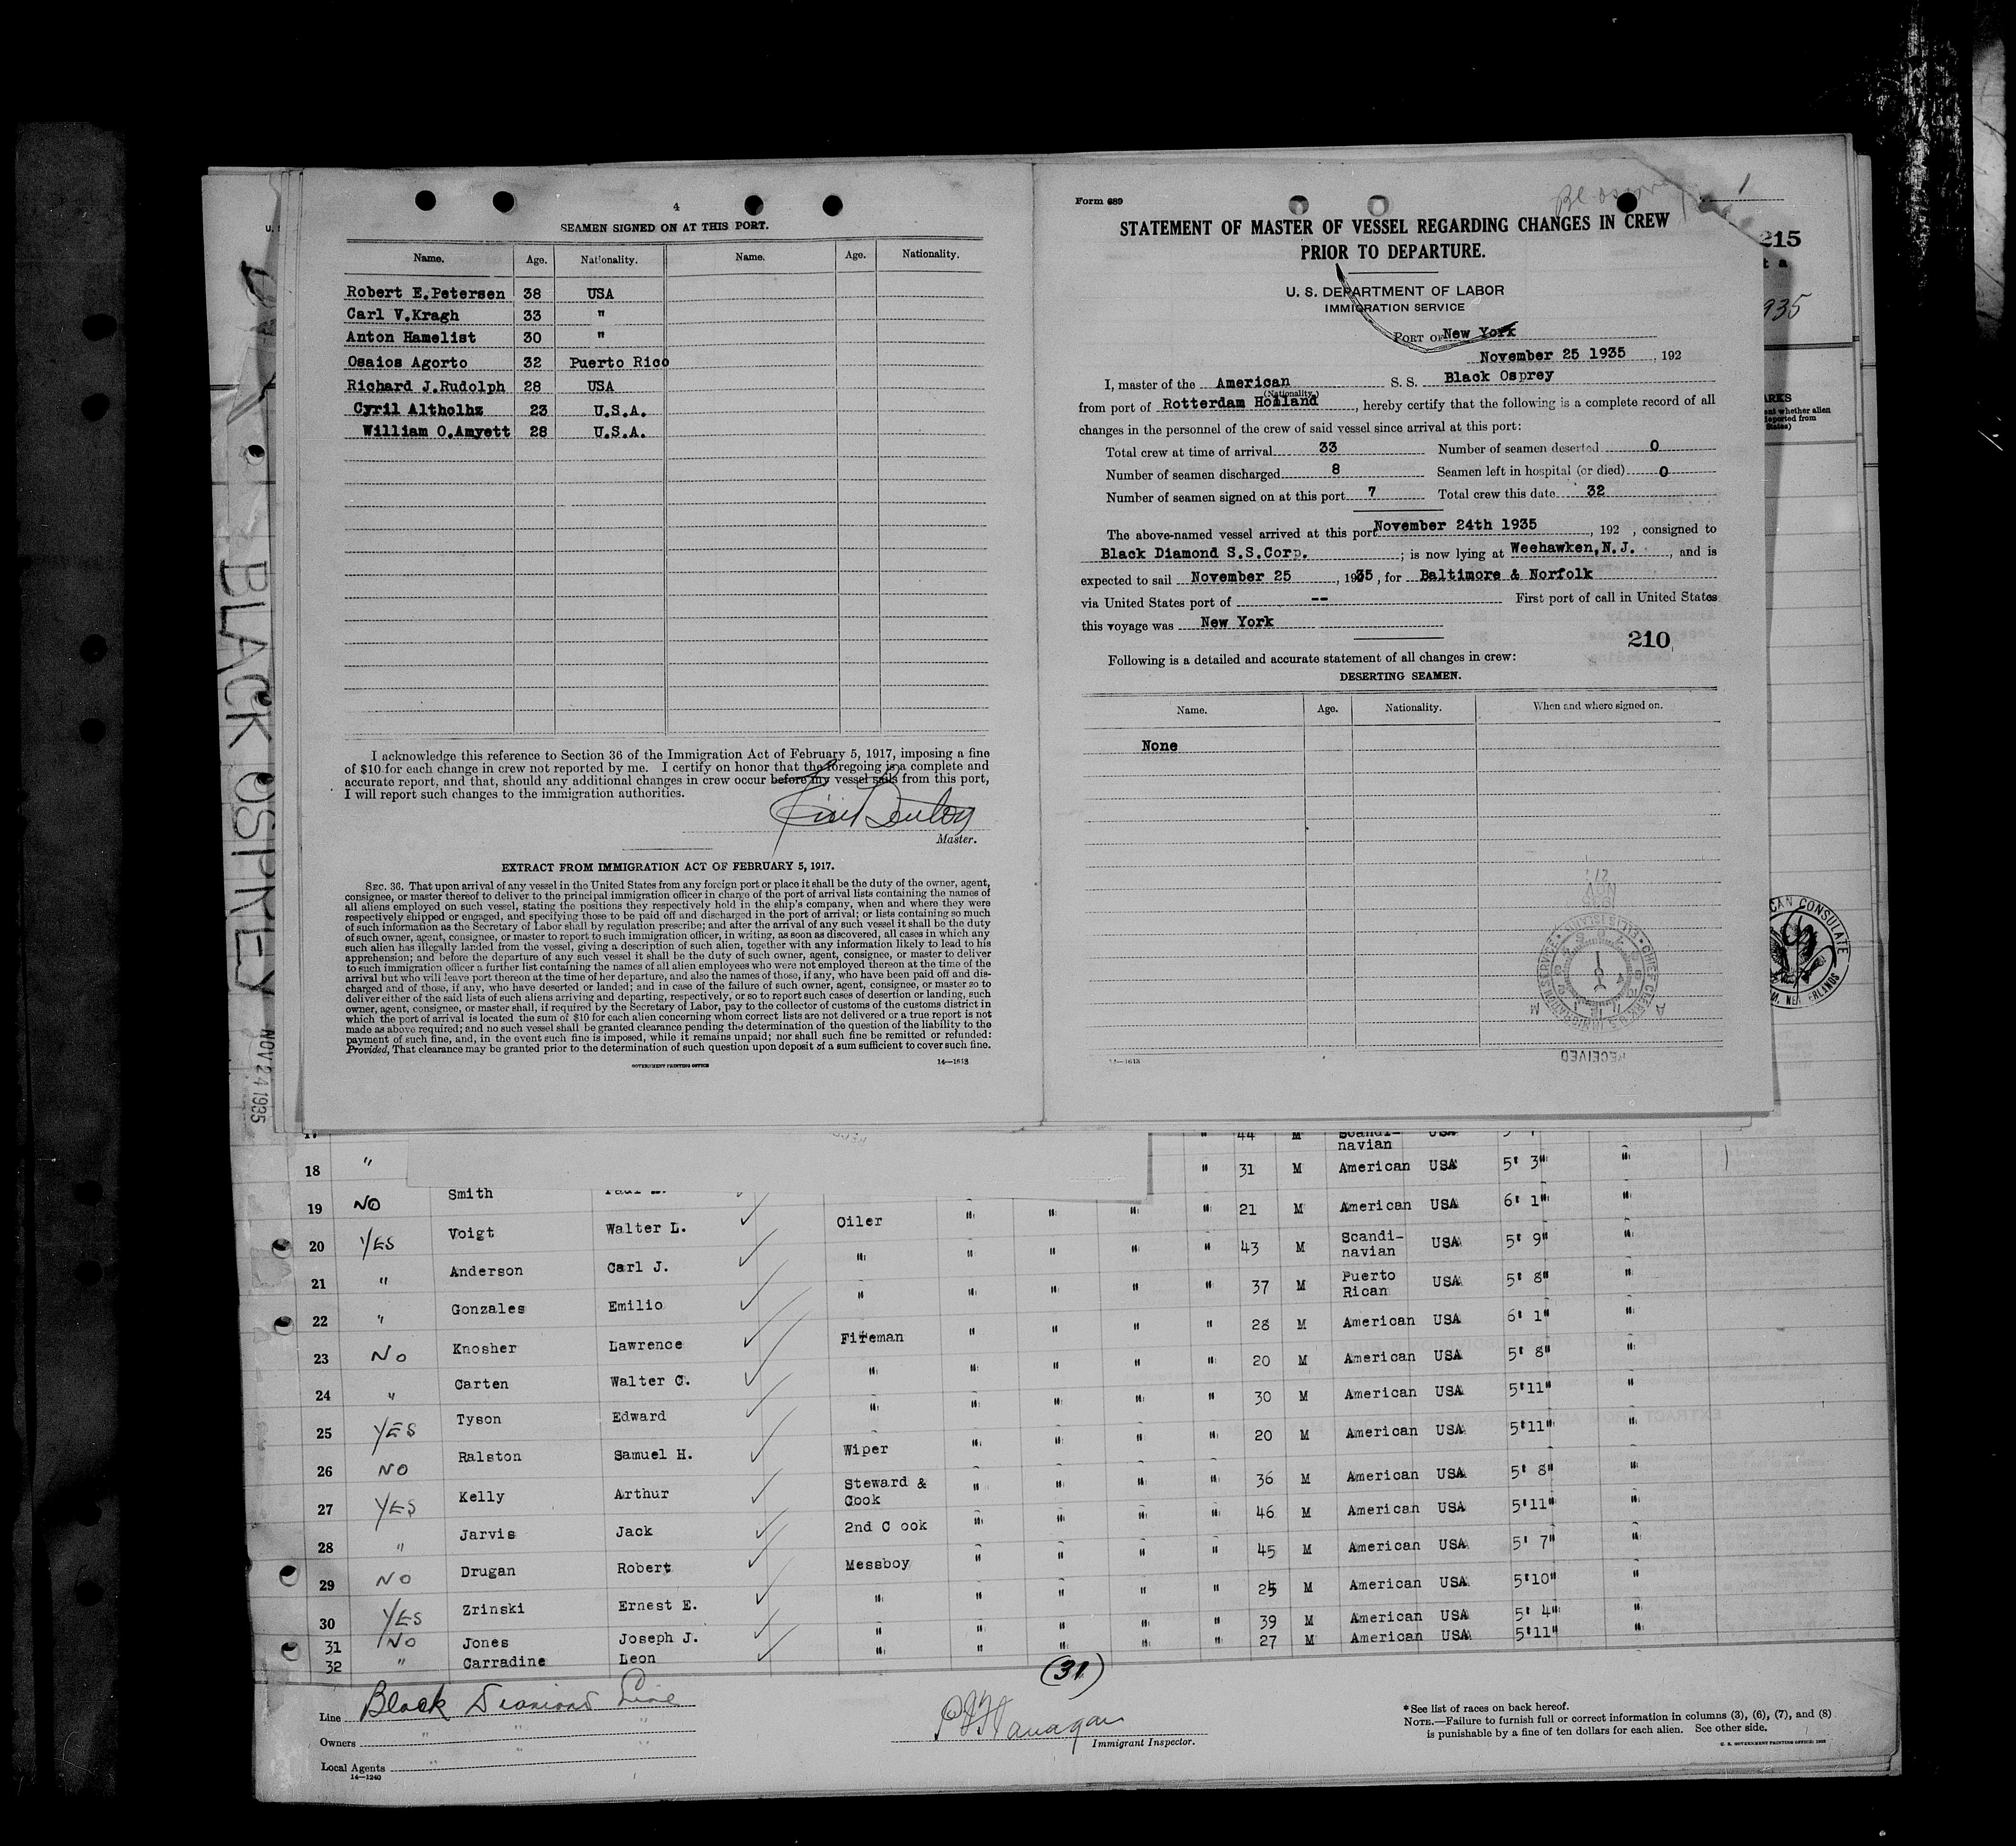 4
SEAMEN SIGNED ON AT THIS PORT.
Name. Age. Nationality. Name. Age. Nationality.
Robert E.Petersen 38 USA
Carl V.Kragh 33 "
Anton Hamelist 30 "
Osaios Agorto 32 Puerto Rico
Richard J.Rudolph 28 USA
Cyril Altholhz 23 U.S.A.
William O.Amyett 28 U.S.A.
I acknowledge this reference to Section 36 of the Immigration Act of February 5, 1917, imposing a fine
of $10 for each change in crew not reported by me. I certify on honor that the foregoing is a complete and
accurate report, and that, should any additional changes in crew occur before my vessel sails from this port,
I will report such changes to the immigration authorities.
Master.
EXTRACT FROM IMMIGRATION ACT OF FEBRUARY 5, 1917.
SEC. 36. That upon arrival of any vessel in the United States from any foreign port or place it shall be the duty of the owner, agent,
consignee, or master thereof to deliver to the principal immigration officer in charge of the port of arrival lists containing the names of
all aliens employed on such vessel, stating the positions they respectively hold in the ship's company, when and where they were
respectively shipped or engaged, and specifying those to be paid off and discharged in the port of arrival; or lists containing so much
of such information as the Secretary of Labor shall by regulation prescribe; and after the arrival of any such vessel it shall be the duty
of such owner, agent, consignee, or master to report to such immigration officer, in writing, as soon as discovered, all cases in which any
such alien has illegally landed from the vessel, giving a description of such alien, together with any information likely to lead to his
apprehension; and before the departure of any such vessel it shall be the duty of such owner, agent, consignee, or master to deliver
to such immigration officer a further list containing the names of all alien employees who were not employed thereon at the time of the
arrival but who will leave port thereon at the time of her departure, and also the names of those, if any, who have been paid off and dis-
charged and of those, if any, who have deserted or landed; and in case of the failure of such owner, agent, consignee, or master so to
deliver either of the said lists of such aliens arriving and departing, respectively, or so to report such cases of desertion or landing, such
owner, agent, consignee, or master shall, if required by the Secretary of Labor, pay to the collector of customs of the customs district in
which the port of arrival is located the sum of $10 for each alien concerning whom correct lists are not delivered or a true report is not
made as above required; and no such vessel shall be granted clearance pending the determination of the question of the liability to the
payment of such fine, and, in the event such fine is imposed, while it remains unpaid; nor shall such fine be remitted or refunded:
Provided, That clearance may be granted prior to the determination of such question upon deposit of a sum sufficient to cover such fine.
GOVERNMENT PRINTING OFFICE 14—1613
BLACK OSPREY NOV 24 1935
Form 689
STATEMENT OF MASTER OF VESSEL REGARDING CHANGES IN CREW
PRIOR TO DEPARTURE.
U. S. DEPARTMENT OF LABOR
IMMIGRATION SERVICE
PORT OF New York
November 25 1935, 192
I, master of the American S. S. Black Osprey
(Nationality.)
from port of Rotterdam Holland, hereby certify that the following is a complete record of all
changes in the personnel of the crew of said vessel since arrival at this port:
Total crew at time of arrival 33 Number of seamen deserted 0
Number of seamen discharged 8 Seamen left in hospital (or died) 0
Number of seamen signed on at this port 7 Total crew this date 32
The above-named vessel arrived at this port November 24th 1935, 192 , consigned to
Black Diamond S.S.Corp. ; is now lying at Weehawken,N.J. , and is
expected to sail November 25, 1935, for Baltimore & Norfolk
via United States port of -- First port of call in United States
this voyage was New York
210
Following is a detailed and accurate statement of all changes in crew:
DESERTING SEAMEN.
Name. Age. Nationality. When and where signed on.
None
RECEIVED
14—1613
215
1935
17 " 44 M Scandi-navian USA
18 " " 31 M American USA 5' 3" "
19 NO Smith Paul " 21 M American USA 6' 1" "
20 YES Voigt Walter L. Oiler " " " " 43 M Scandi-navian USA 5' 9" "
21 " Anderson Carl J. " " " " " 37 M Puerto Rican USA 5' 8" "
22 " Gonzales Emilio " " " " " 28 M American USA 6' 1" "
23 NO Knosher Lawrence Fireman " " " " 20 M American USA 5' 8" "
24 " Carten Walter C. " " " " " 30 M American USA 5'11" "
25 YES Tyson Edward " " " " " 20 M American USA 5'11" "
26 NO Ralston Samuel H. Wiper " " " " 36 M American USA 5' 8" "
27 YES Kelly Arthur Steward & Cook " " " " 46 M American USA 5'11" "
28 " Jarvis Jack 2nd C ook " " " " 45 M American USA 5' 7" "
29 NO Drugan Robert Messboy " " " " 25 M American USA 5'10" "
30 YES Zrinski Ernest E. " " " " " 39 M American USA 5' 4" "
31 NO Jones Joseph J. " " " " " 27 M American USA 5'11" "
32 " Carradine Leon " " " "
(31)
Line Black Diamond Line
Owners " " "
Local Agents " "
14—1240
Immigrant Inspector.
*See list of races on back hereof.
NOTE.—Failure to furnish full or correct information in columns (3), (6), (7), and (8)
is punishable by a fine of ten dollars for each alien. See other side.